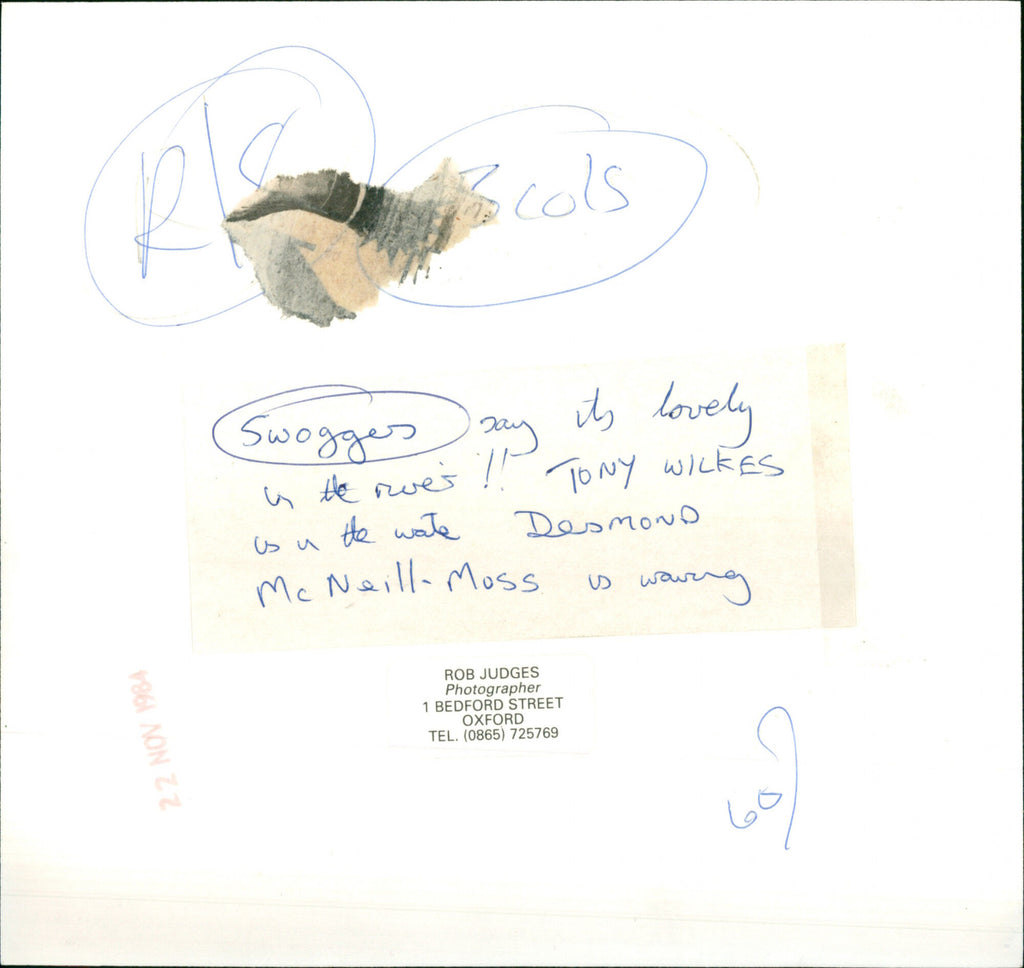 3 cols
Swoggers say its lovely
in the river !! TONY WILKES
is in the water DESMOND
McNeill-Moss is waving
ROB JUDGES
Photographer
1 BEDFORD STREET
OXFORD
TEL. (0865) 725769
22 NOV 1984